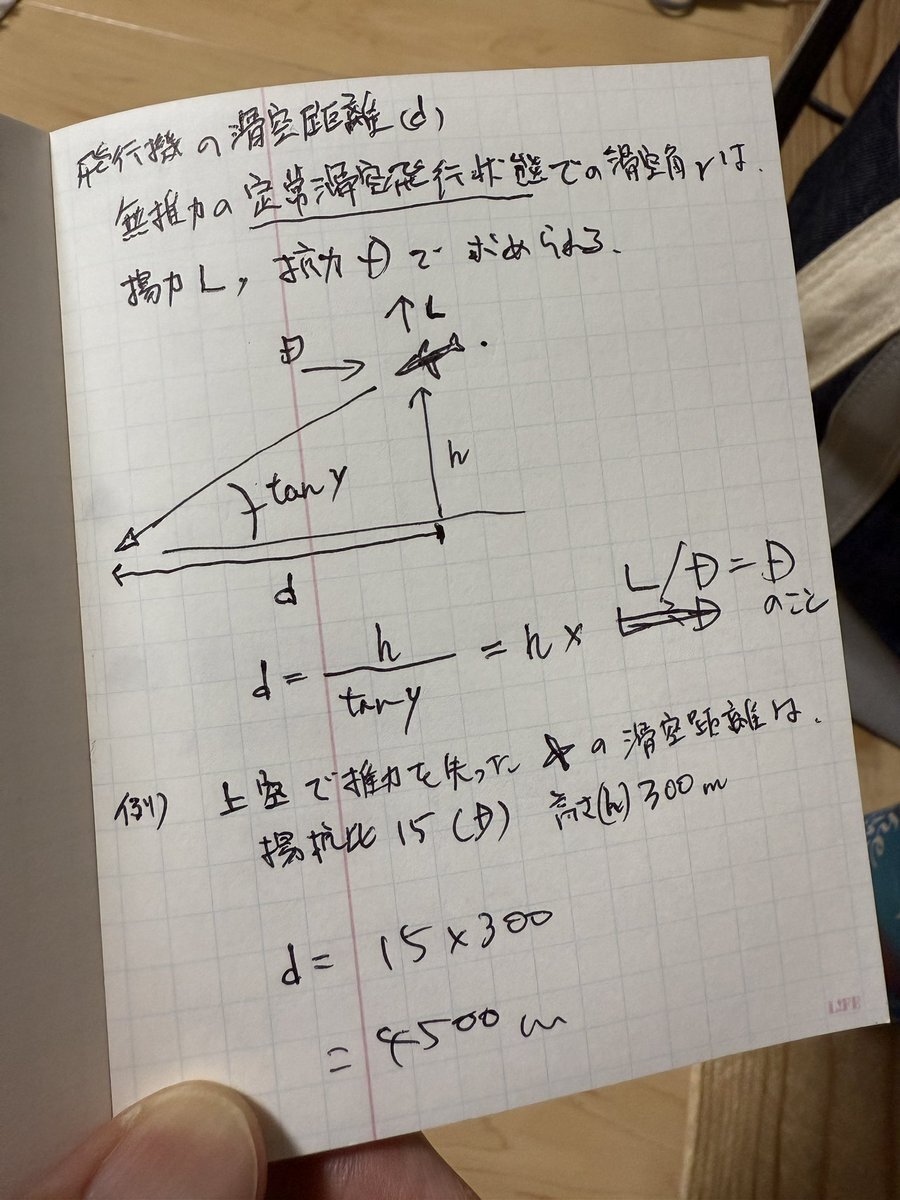 飛行機の滑空距離(d)
無推力の定常滑空飛行状態での滑空角γは、
揚力L,抗力Dで求められる。
↑L
D →
h
tanγ
d
d = h / tanγ = h × L/D = D
のこと
例) 上空で推力を失った の滑空距離は、
揚抗比15(D) 高さ(h)300m
d = 15×300
= 4500m
LIFE